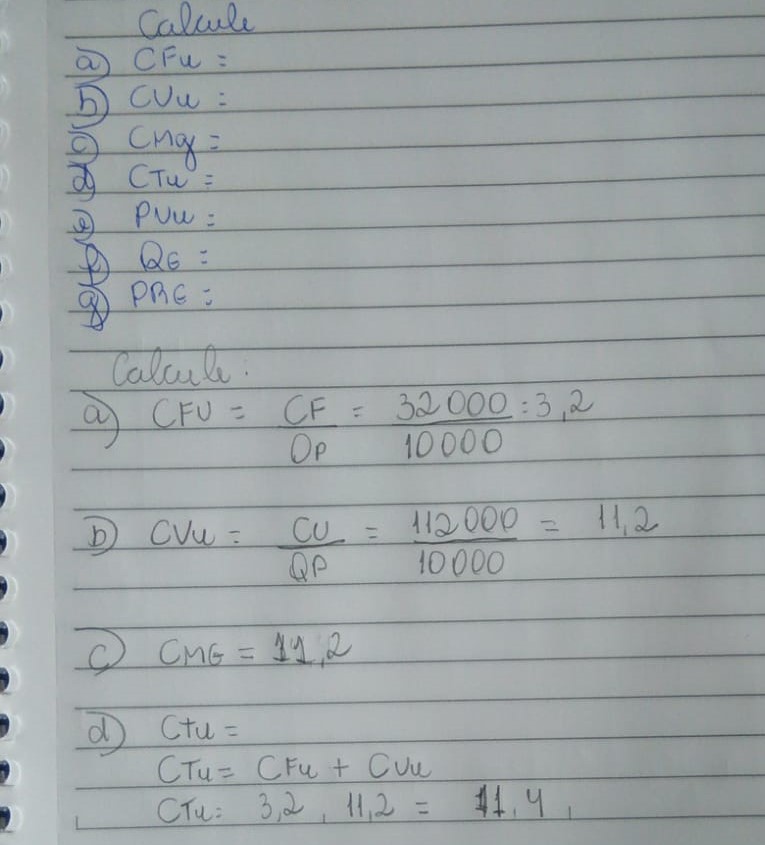 Calcule
a) CFu =
b) CVu =
c) CMg =
d) CTu =
e) PVu =
QE =
g) PRE =
Calcule:
a) CFU = CF = 32000 = 3,2
OP 10000
b) CVu = CU = 112000 = 11,2
QP 10000
c) CMG = 11,2
d) Ctu =
CTu = CFu + CVu
CTu = 3,2 , 11,2 = 11,4